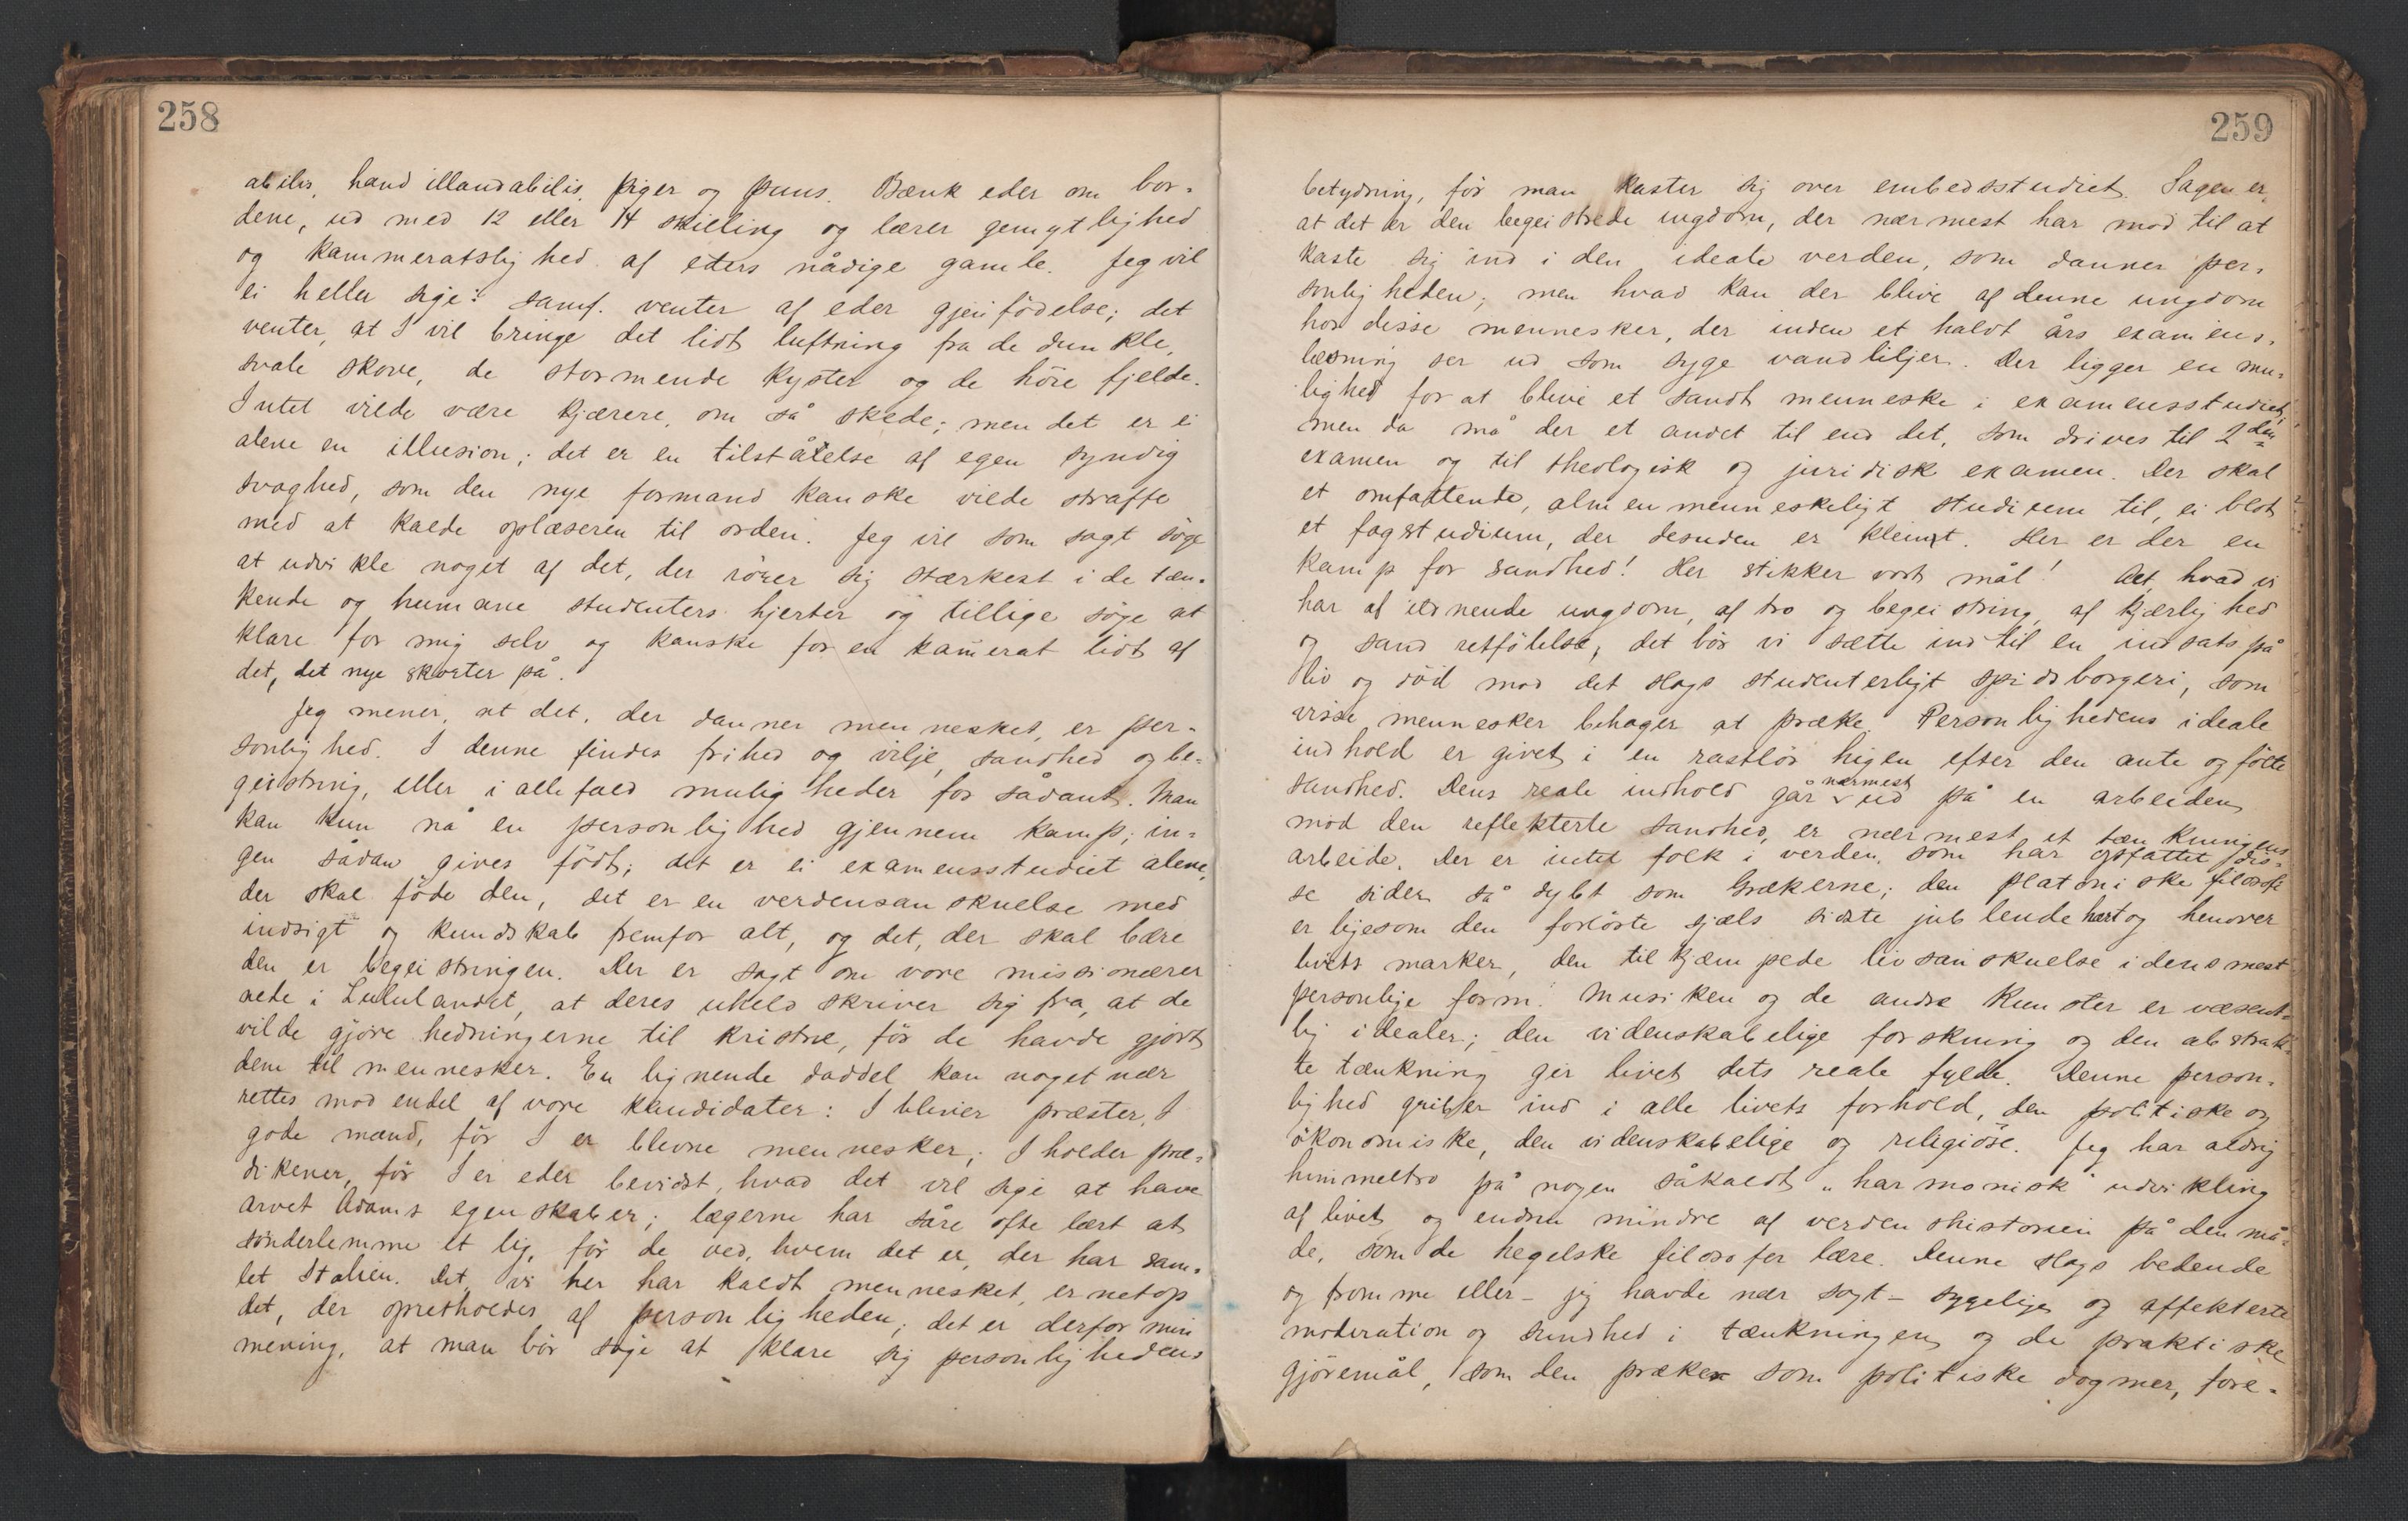 258
abiler, haud illaudabilis, piger og puns. Bænk eder om bor-
dene, ud med 12 eller 14 skilling og lærer gemytlighed
og kammeratslighed af eders nådige gamle. Jeg vil
ei heller sige: samf. venter af eder gjenfödelse; det
venter, at I vil bringe det lidt luftning fra de dunkle,
svale skove, de stormende kyster og de höie fjelde.
Intet vilde være kjærere, om så skede; men det er ei
alene en illusion; det er en tilståelse af egen syndig
svaghed, som den nye formand kanske vilde straffe
med at kalde oplæseren til orden. Jeg vil som sagt söge
at udvikle noget af det, der rörer sig stærkest i de tæn-
kende og humane studenters hjerter og tillige söge at
klare for mig selv og kanske for en kam̄erat lidt af
det, det nye skorter på.
Jeg mener, at det, der danner mennesket, er per-
sonlighed. I denne findes frihed og vilje, sandhed og be-
geistring, eller i allefald muligheder for sådant. Man
kan kun nå en personlighed gjennem kamp; in-
gen sådan gives födt; det er ei examensstudiet alene,
der skal föde den, det er en verdensanskuelse med
indsigt og kundskab fremfor alt, og det, der skal bære
den er begeistringen. Der er sagt om vore missionærer
nede i Zululandet, at deres uheld skriver sig fra, at de
vilde gjöre hedningerne til kristne, för de havde gjort
dem til mennesker. En lignende daddel kan noget nær
rettes mod endel af vore kandidater: I bliver præster, I
gode mænd, för I er blevne mennesker; I holder præ-
dikener, för I er eder bevidst, hvad det vil sige at have
arvet Adams egenskaber; lægerne har såre ofte lært at
sönderlemme et lig, för de ved, hvem det er, der har sam-
let Italien. Det, vi her har kaldt mennesket, er netop
det, der opretholdes af personligheden; det er derfor min
mening, at man bör söge at klare sig personlighedens
259
betydning, för man kaster sig over embedsstudiet. Sagen er,
at det er den begeistrede ungdom, der nærmest har mod til at
kaste sig ind i den ideale verden, som danner per-
sonligheden; men hvad kan der blive af denne ungdom
hos disse mennesker, der inden et halvt års examens-
læsning ser ud som syge vandliljer. Der ligger en mu-
lighed for at blive et sandt menneske i examensstudiet,
men da må der et andet til end det, som drives til 2den
examen og til theologisk og juridisk examen. Der skal
et omfattende, almenmenneskeligt studium til, ei blot
et fagstudium, der desuden er kleint. Her er der en
kamp for sandhed! Her stikker vort mål! Alt, hvad vi
har af ildnende ungdom, af tro og begeistring, af kjærlighed
og sand retfölelse, det bör vi sætte ind til en indsats på
liv og död mod det slags studenterligt spidsborgeri, som
visse mennesker behager at præke. Personlighedens ideale
indhold er givet i en rastlös higen efter den ante og fölte
sandhed. Dens reale indhold går nærmest ud på en arbeiden
mod den reflekterte sandhed, er nærmest et tænkningens
arbeide. Der er intet folk i verden, som har opfattet dis-
se sider så dybt som Grækerne; den platoniske filosofi
er ligesom den forlöste sjæls sidste jublende hærtog henover
livets marker, den tilkjæmpede livsanskuelse i dens mest
personlige form. Musiken og de andre kunster er væsent-
lig idealer; den videnskabelige forskning og den abstrak-
te tænkning gir livet dets reale fylde. Denne person-
lighed griber ind i alle livets forhold, den politiske og
ökonomiske, den videnskabelige og religiöse. Jeg har aldrig
himmeltro på nogen såkaldt "harmonisk" udvikling
af livet og endnu mindre af verdenshistorien på den må-
de, som de hegelske filosofer lære. Denne slags bedende
og fromme eller – jeg havde nær sagt – sygelige og affekterte
moderation og sundhed i tænkningen og de praktiske
gjöremål, som den præker som politiske dogmer, fore-